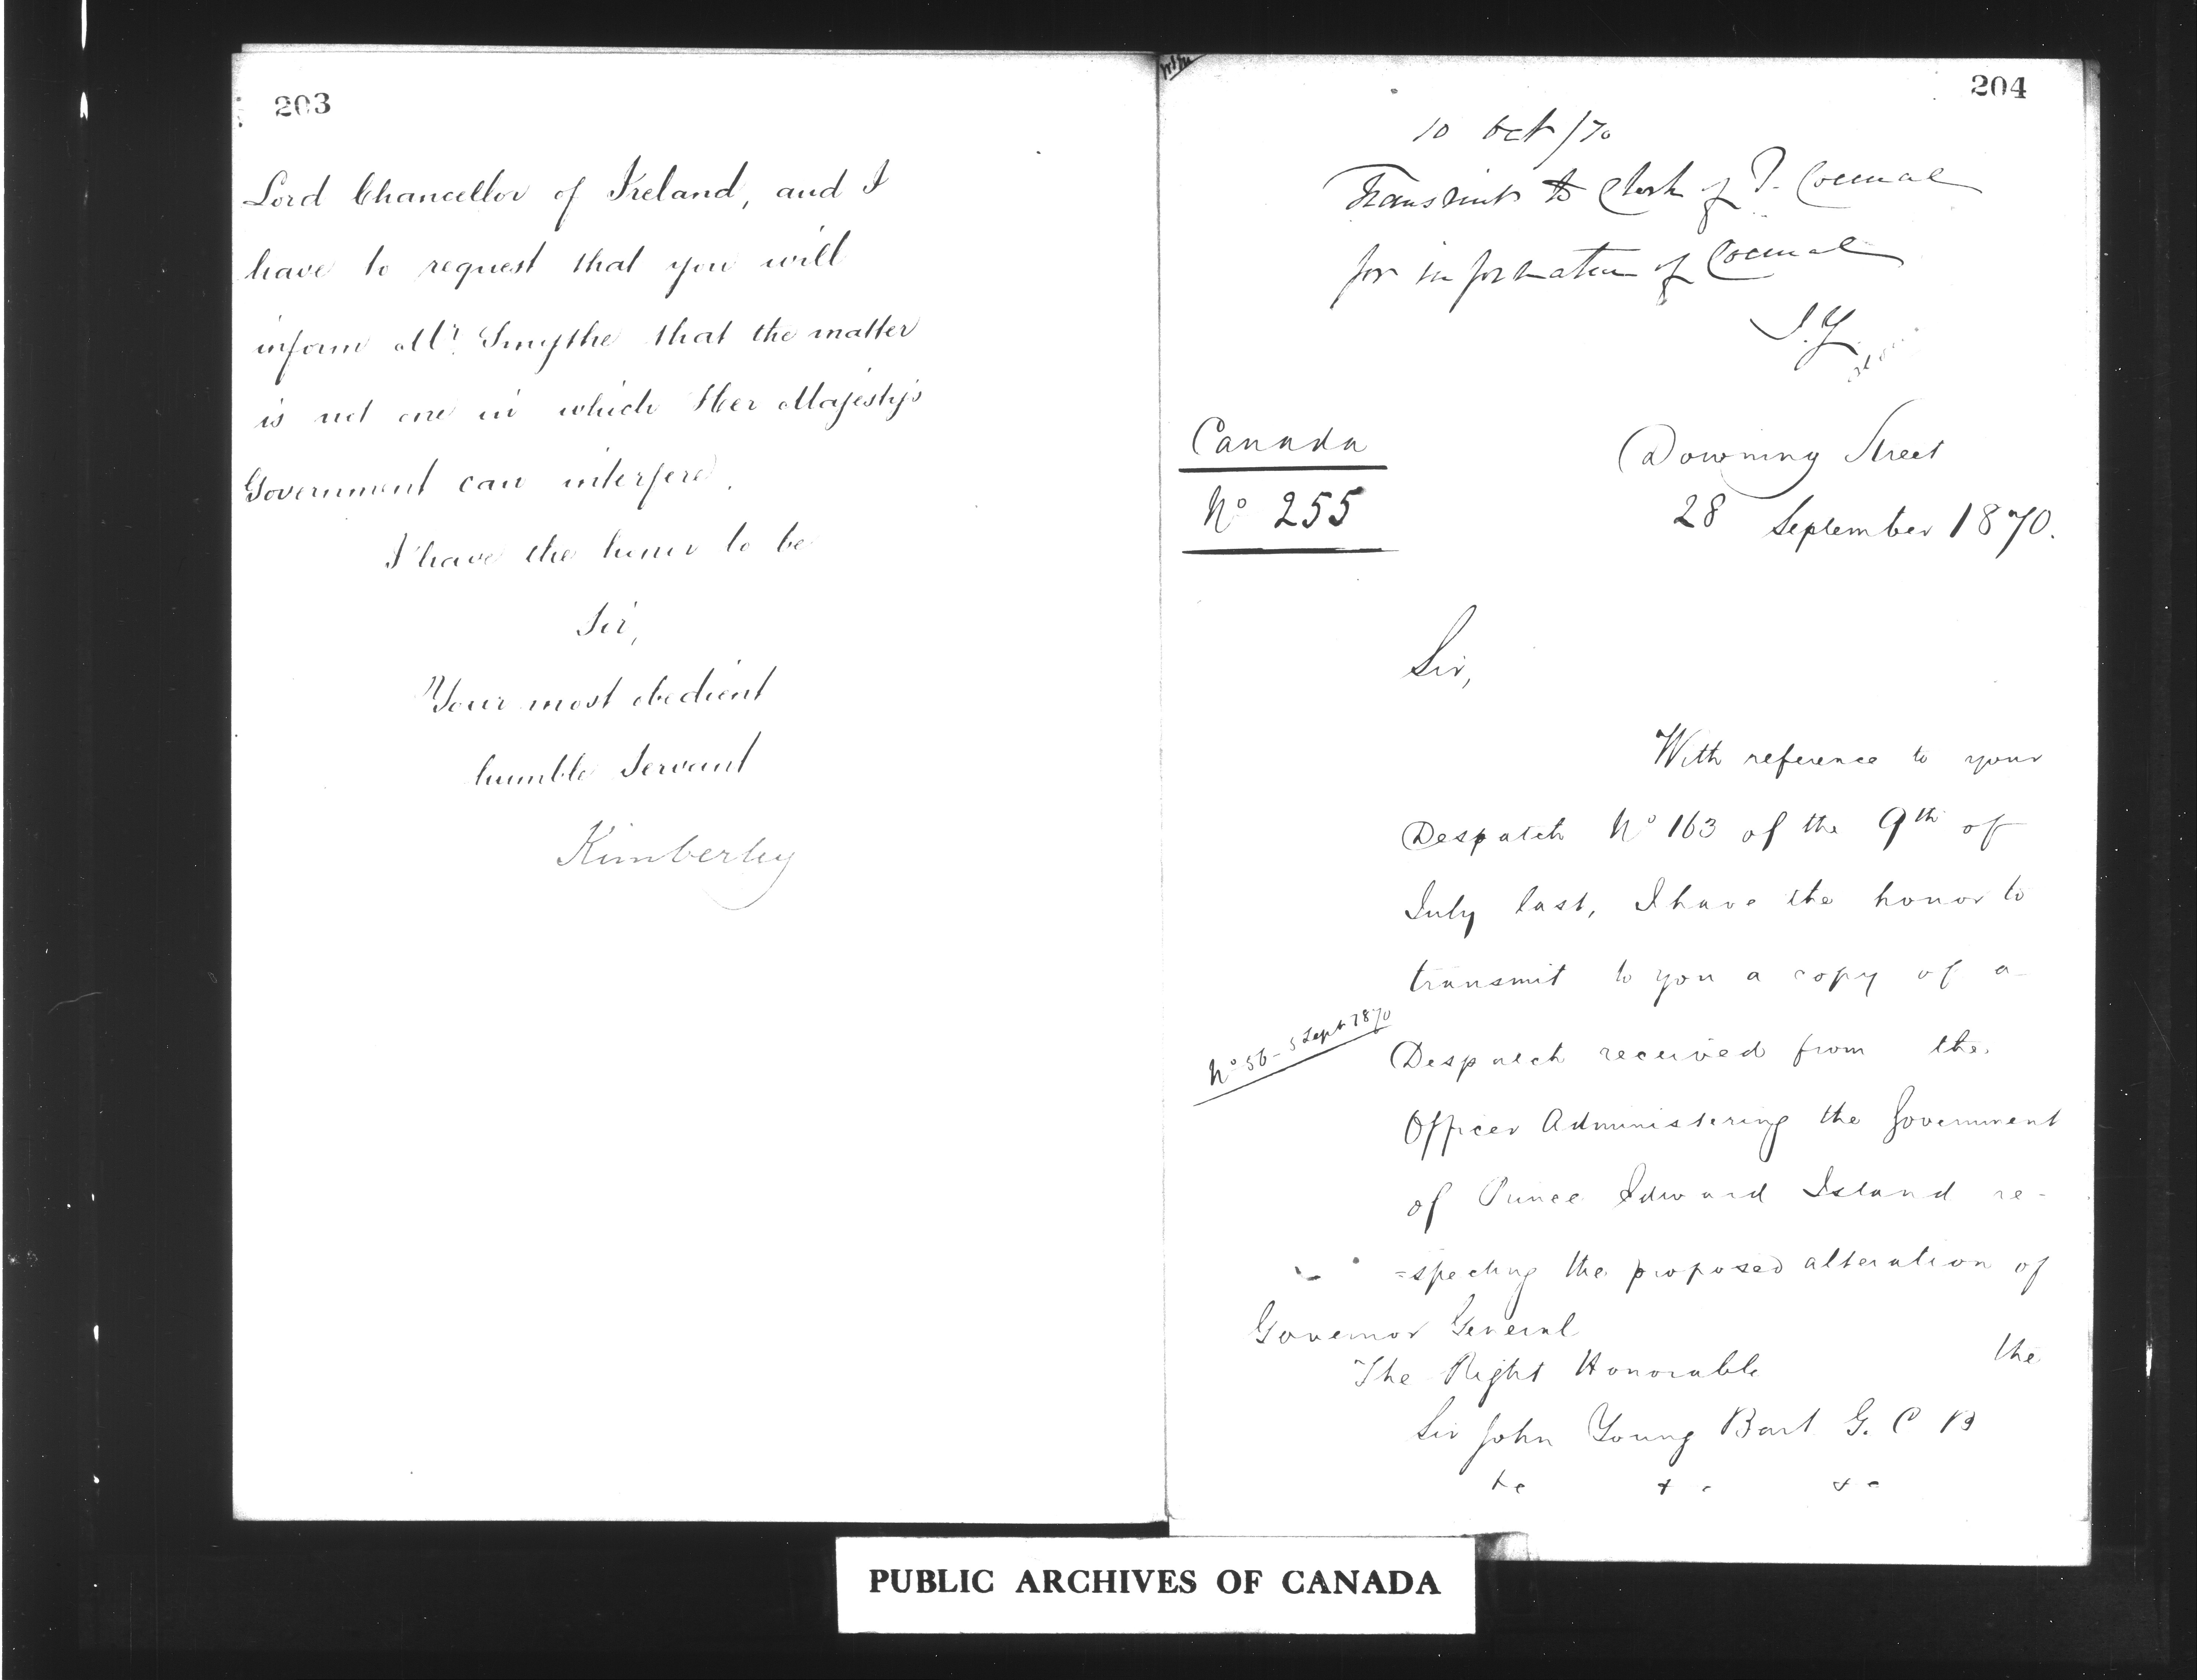 203
Lord Chancellor of Ireland, and I
have to request that you will
inform Mr. Smythe that the matter
is not one in which Her Majesty's
Government can interfere.
I have the honor to be
Sir,
Your most obedient
humble Servant
Kimberley
204
10 Oct /70
Transmit to Clerk of P. Council
for information of Council
J.Y.
Canada
No 255
Downing Street
28 September 1870.
Sir,
With reference to your
Despatch No 163 of the 9th of
July last, I have the honor to
transmit to you a copy of a
No 56 - 5 Sept 1870
Despatch received from the
Officer Administering the Government
of Prince Edward Island re-
=specting the proposed alteration of
the
Governor General
The Right Honorable
Sir John Young Bart G. C B
&c &c &c
PUBLIC ARCHIVES OF CANADA